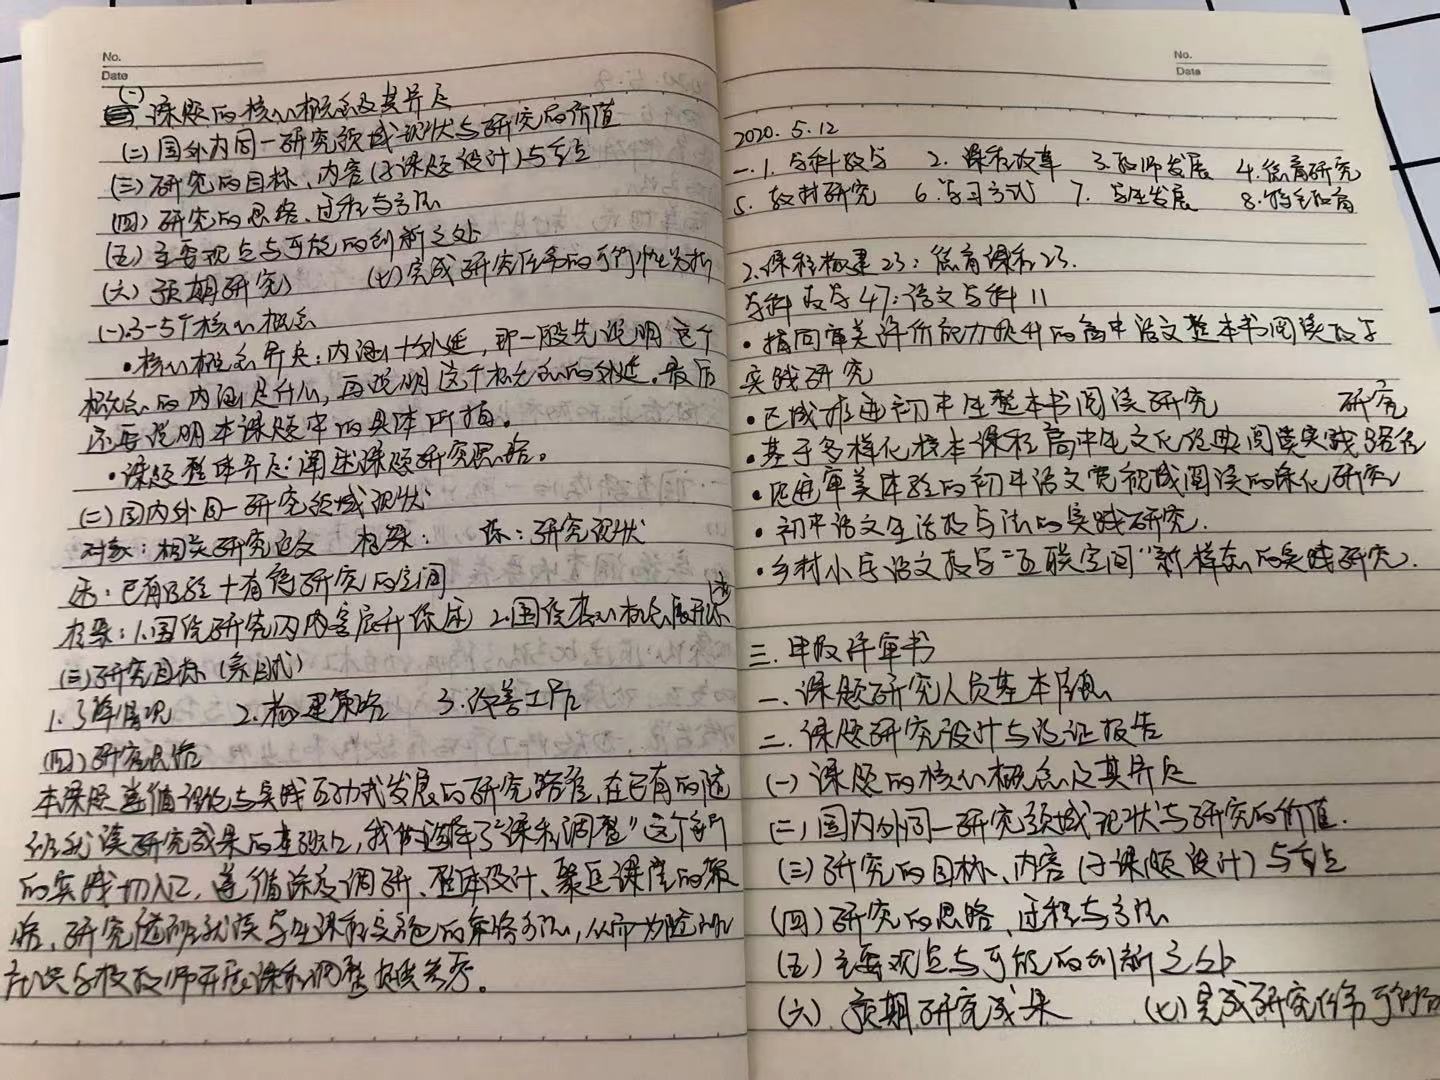 No.
Date
(一) 课题的核心概念及其界定
(二) 国外内同一研究领域现状与研究的价值
(三) 研究的目标、内容(子课题设计)与重点
(四) 研究的思路、过程与方法
(五) 主要观点与可能的创新之处
(六) 预期研究 (七)完成研究任务的可行性分析
(一)3-5个核心概念
•核心概念界定:内涵+外延,即一般先说明这个
概念的内涵是什么,再说明这个概念的外延。最后
还要说明本课题中的具体所指。
•课题整体界定:阐述课题研究思路。
(二)国内外同一研究领域现状
对象:相关研究论文 框架: 综:研究现状
述:已有经验+有待研究的空间
框架:1.国绕研究内内容展开综述 2.国绕核心概念展开综述
(三)研究目标 (条目式)
1.了解情况 2.构建策略 3.改善工具
(四)研究思路
本课题遵循理论与实践互动式发展的研究路径,在已有的随
班就读研究成果的基础上,我们选择了"课程调整"这个新
的实践切入口,遵循深度调研、整体设计、聚焦课堂的策
略,研究随班就读学生课程实施的策略方法,从而为随班
就读学校教师开展课程调整提供参考。
No.
Date
2020.5.12
一.1.学科教学 2.课程改革 3.教师发展 4.德育研究
5.教材研究 6.学习方式 7.学生发展 8.特殊教育
2.课程构建23:德育课程23.
学科教学47:语文学科11
•指向审美评价能力提升的高中语文整本书阅读教学
实践研究
•区域推进初中生整本书阅读研究 研究
•基于多样化校本课程高中生文化经典阅读实践路径
•促进审美体验的初中语文宽视域阅读的深化研究
•初中语文生活教学法的实践研究.
•乡村小学语文教学"互联空间"新样态的实践研究.
三.申报评审书
一.课题研究人员基本信息
二.课题研究设计与论证报告
(一)课题的核心概念及其界定
(二)国内外同一研究领域现状与研究的价值.
(三)研究的目标、内容(子课题设计)与重点
(四)研究的思路、过程与方法
(五)主要观点与可能的创新之处
(六)预期研究成果 (七)完成研究任务可行